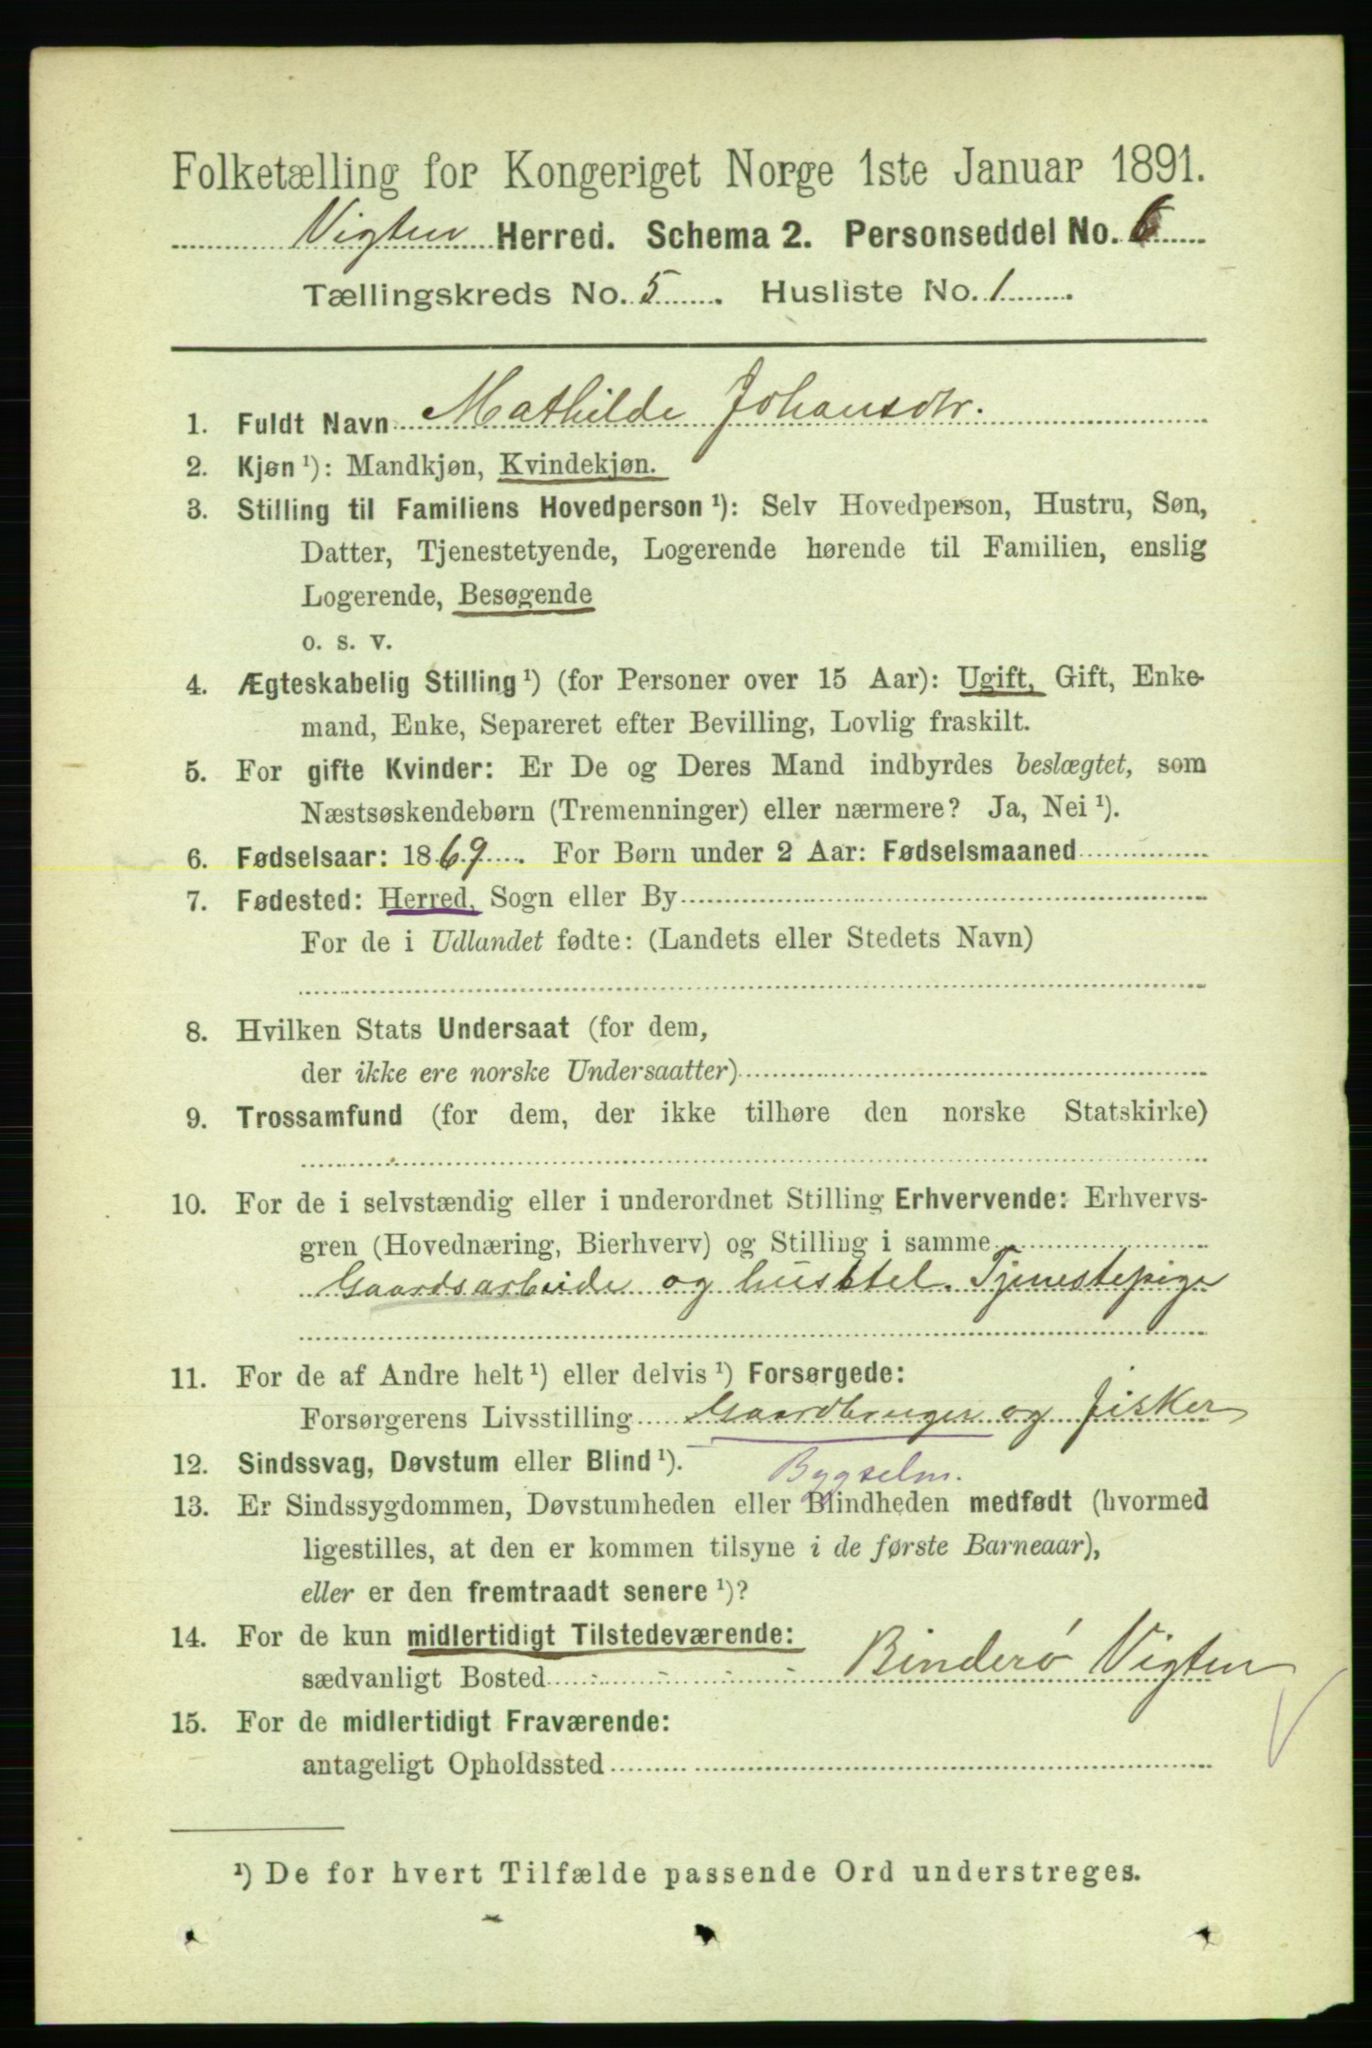 Folketælling for Kongeriget Norge 1ste Januar 1891.
Vigten Herred. Schema 2. Personseddel No. 6
Tællingskreds No. 5. Husliste No. 1.
1. Fuldt Navn Mathilde Johansdtr.
2. Kjøn ¹): Mandkjøn, Kvindekjøn.
3. Stilling til Familiens Hovedperson ¹): Selv Hovedperson, Hustru, Søn,
Datter, Tjenestetyende, Logerende hørende til Familien, enslig
Logerende, Besøgende
o. s. v.
4. Ægteskabelig Stilling ¹) (for Personer over 15 Aar): Ugift, Gift, Enke-
mand, Enke, Separeret efter Bevilling, Lovlig fraskilt.
5. For gifte Kvinder: Er De og Deres Mand indbyrdes beslægtet, som
Næstsøskendebørn (Tremenninger) eller nærmere? Ja, Nei ¹).
6. Fødselsaar: 1869. For Børn under 2 Aar: Fødselsmaaned
7. Fødested: Herred, Sogn eller By
For de i Udlandet fødte: (Landets eller Stedets Navn)
8. Hvilken Stats Undersaat (for dem,
der ikke ere norske Undersaatter)
9. Trossamfund (for dem, der ikke tilhøre den norske Statskirke)
10. For de i selvstændig eller i underordnet Stilling Erhvervende: Erhvervs-
gren (Hovednæring, Bierhverv) og Stilling i samme
Gaardsarbeide og husstel. Tjenestepige
11. For de af Andre helt ¹) eller delvis ¹) Forsørgede:
Forsørgerens Livsstilling Gaardbruger og fisker
Bygselm.
12. Sindssvag, Døvstum eller Blind ¹).
13. Er Sindssygdommen, Døvstumheden eller Blindheden medfødt (hvormed
ligestilles, at den er kommen tilsyne i de første Barneaar),
eller er den fremtraadt senere ¹)?
14. For de kun midlertidigt Tilstedeværende:
sædvanligt Bosted Binderö Vigten
15. For de midlertidigt Fraværende:
antageligt Opholdssted
¹) De for hvert Tilfælde passende Ord understreges.